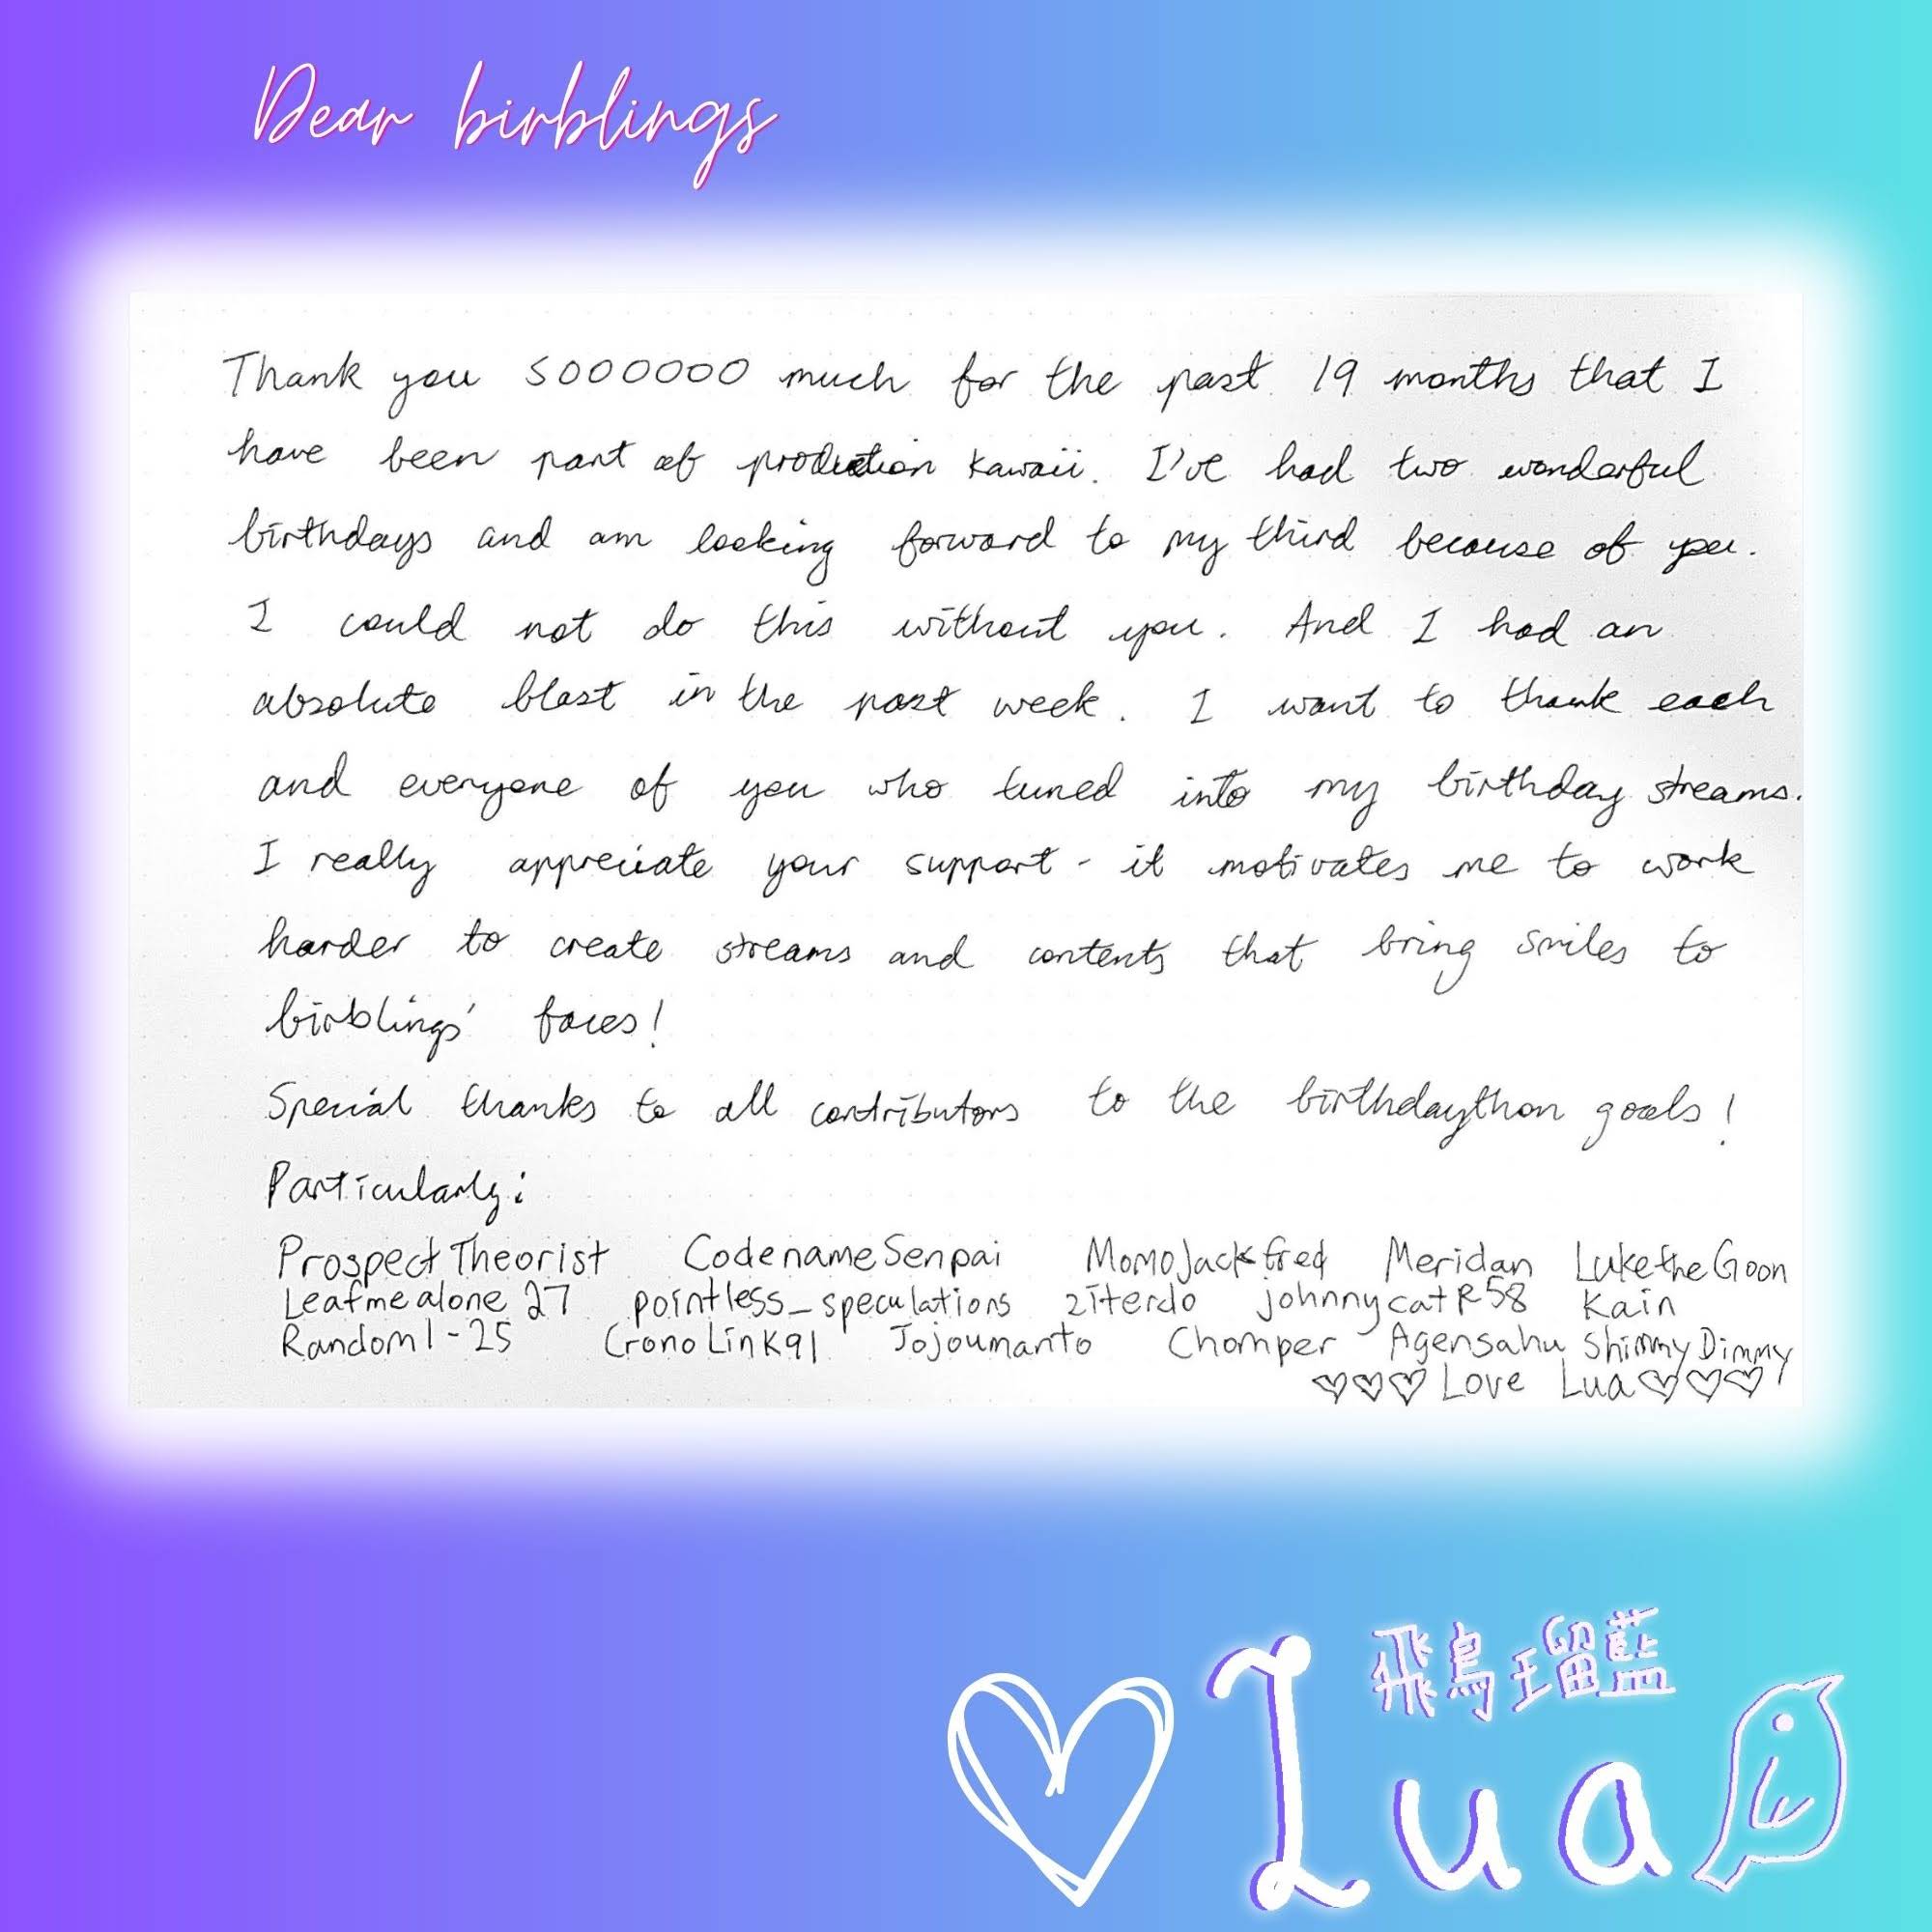 Dear birblings
Thank you soooooo much for the past 19 months that I
have been part of production kawaii. I've had two wonderful
birthdays and am looking forward to my third because of you.
I could not do this without you. And I had an
absolute blast in the past week. I want to thank each
and everyone of you who tuned into my birthday streams.
I really appreciate your support - it motivates me to work
harder to create streams and contents that bring smiles to
birblings' faces!
Special thanks to all contributors to the birthdaython goals!
Particularly:
ProspectTheorist CodenameSenpai MomoJackfred Meridan LuketheGoon
Leafmealone27 pointless_speculations ziterdo johnnycatR58 Kain
Random1-25 CronoLink91 Jojoumanto Chomper Agensahu ShimmyDimmy
♡♡♡ Love Lua ♡♡♡
飛鳥瑠藍
Lua